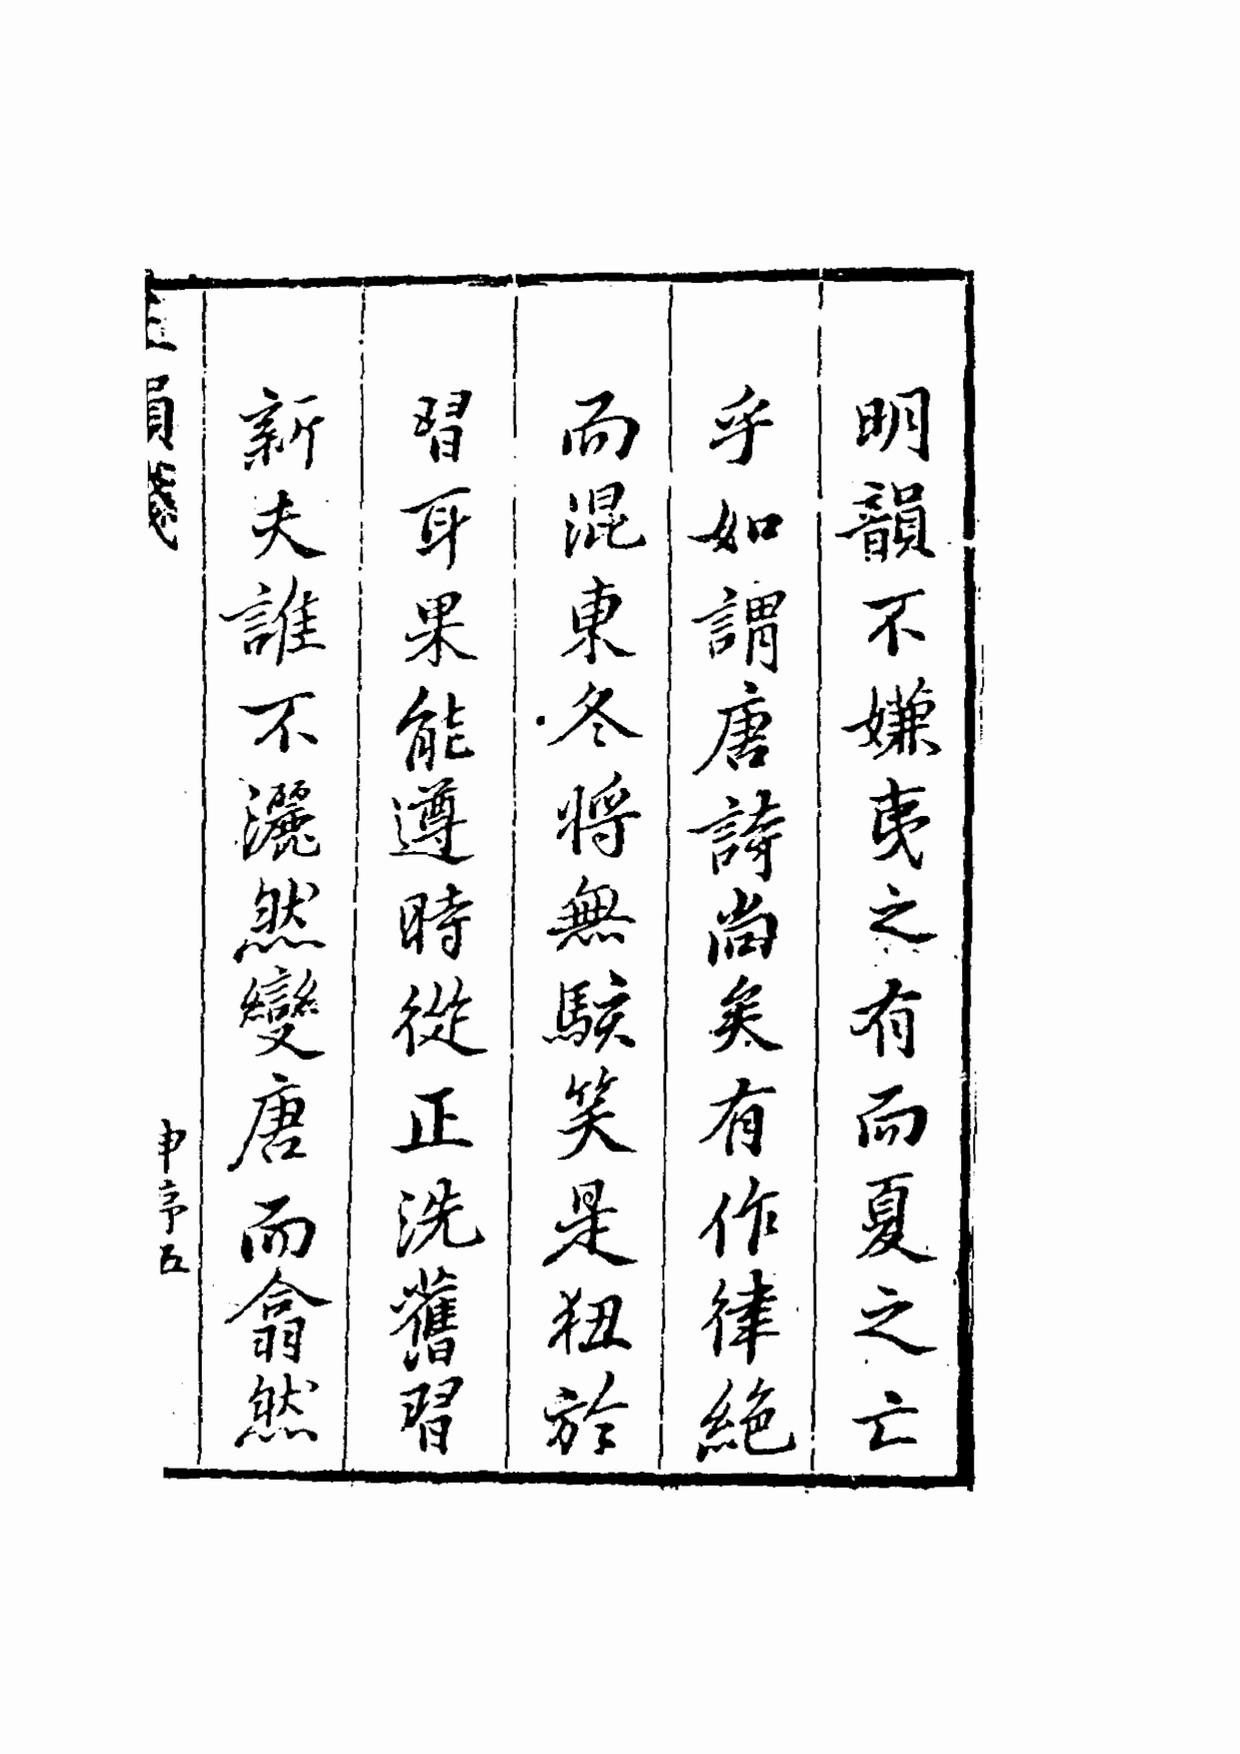 明韻不嫌夷之有而夏之亡
乎如謂唐詩尚矣有作律絕
而混東冬將無駭笑是狃於
習耳果能遵時從正洗舊習
新夫誰不灑然變唐而翕然
韻箋
申序五